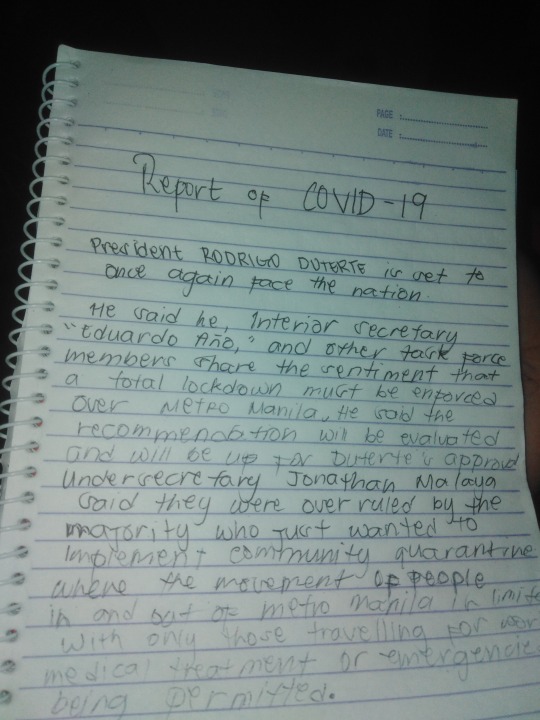 PAGE :
DATE :
Report of COVID-19
President RODRIGO DUTERTE is set to
once again face the nation.
He said he, Interior secretary
"Eduardo Año," and other task force
members share the sentiment that
a total lockdown must be enforced
over Metro Manila. He said the
recommendation will be evaluated
and will be up for Duterte's approval
Undersecretary Jonathan Malaya
said they were overruled by the
majority who just wanted to
implement community quarantine
where the movement of people
in and out of metro manila is limited
with only those travelling for work
medical treatment or emergencies
being permitted.